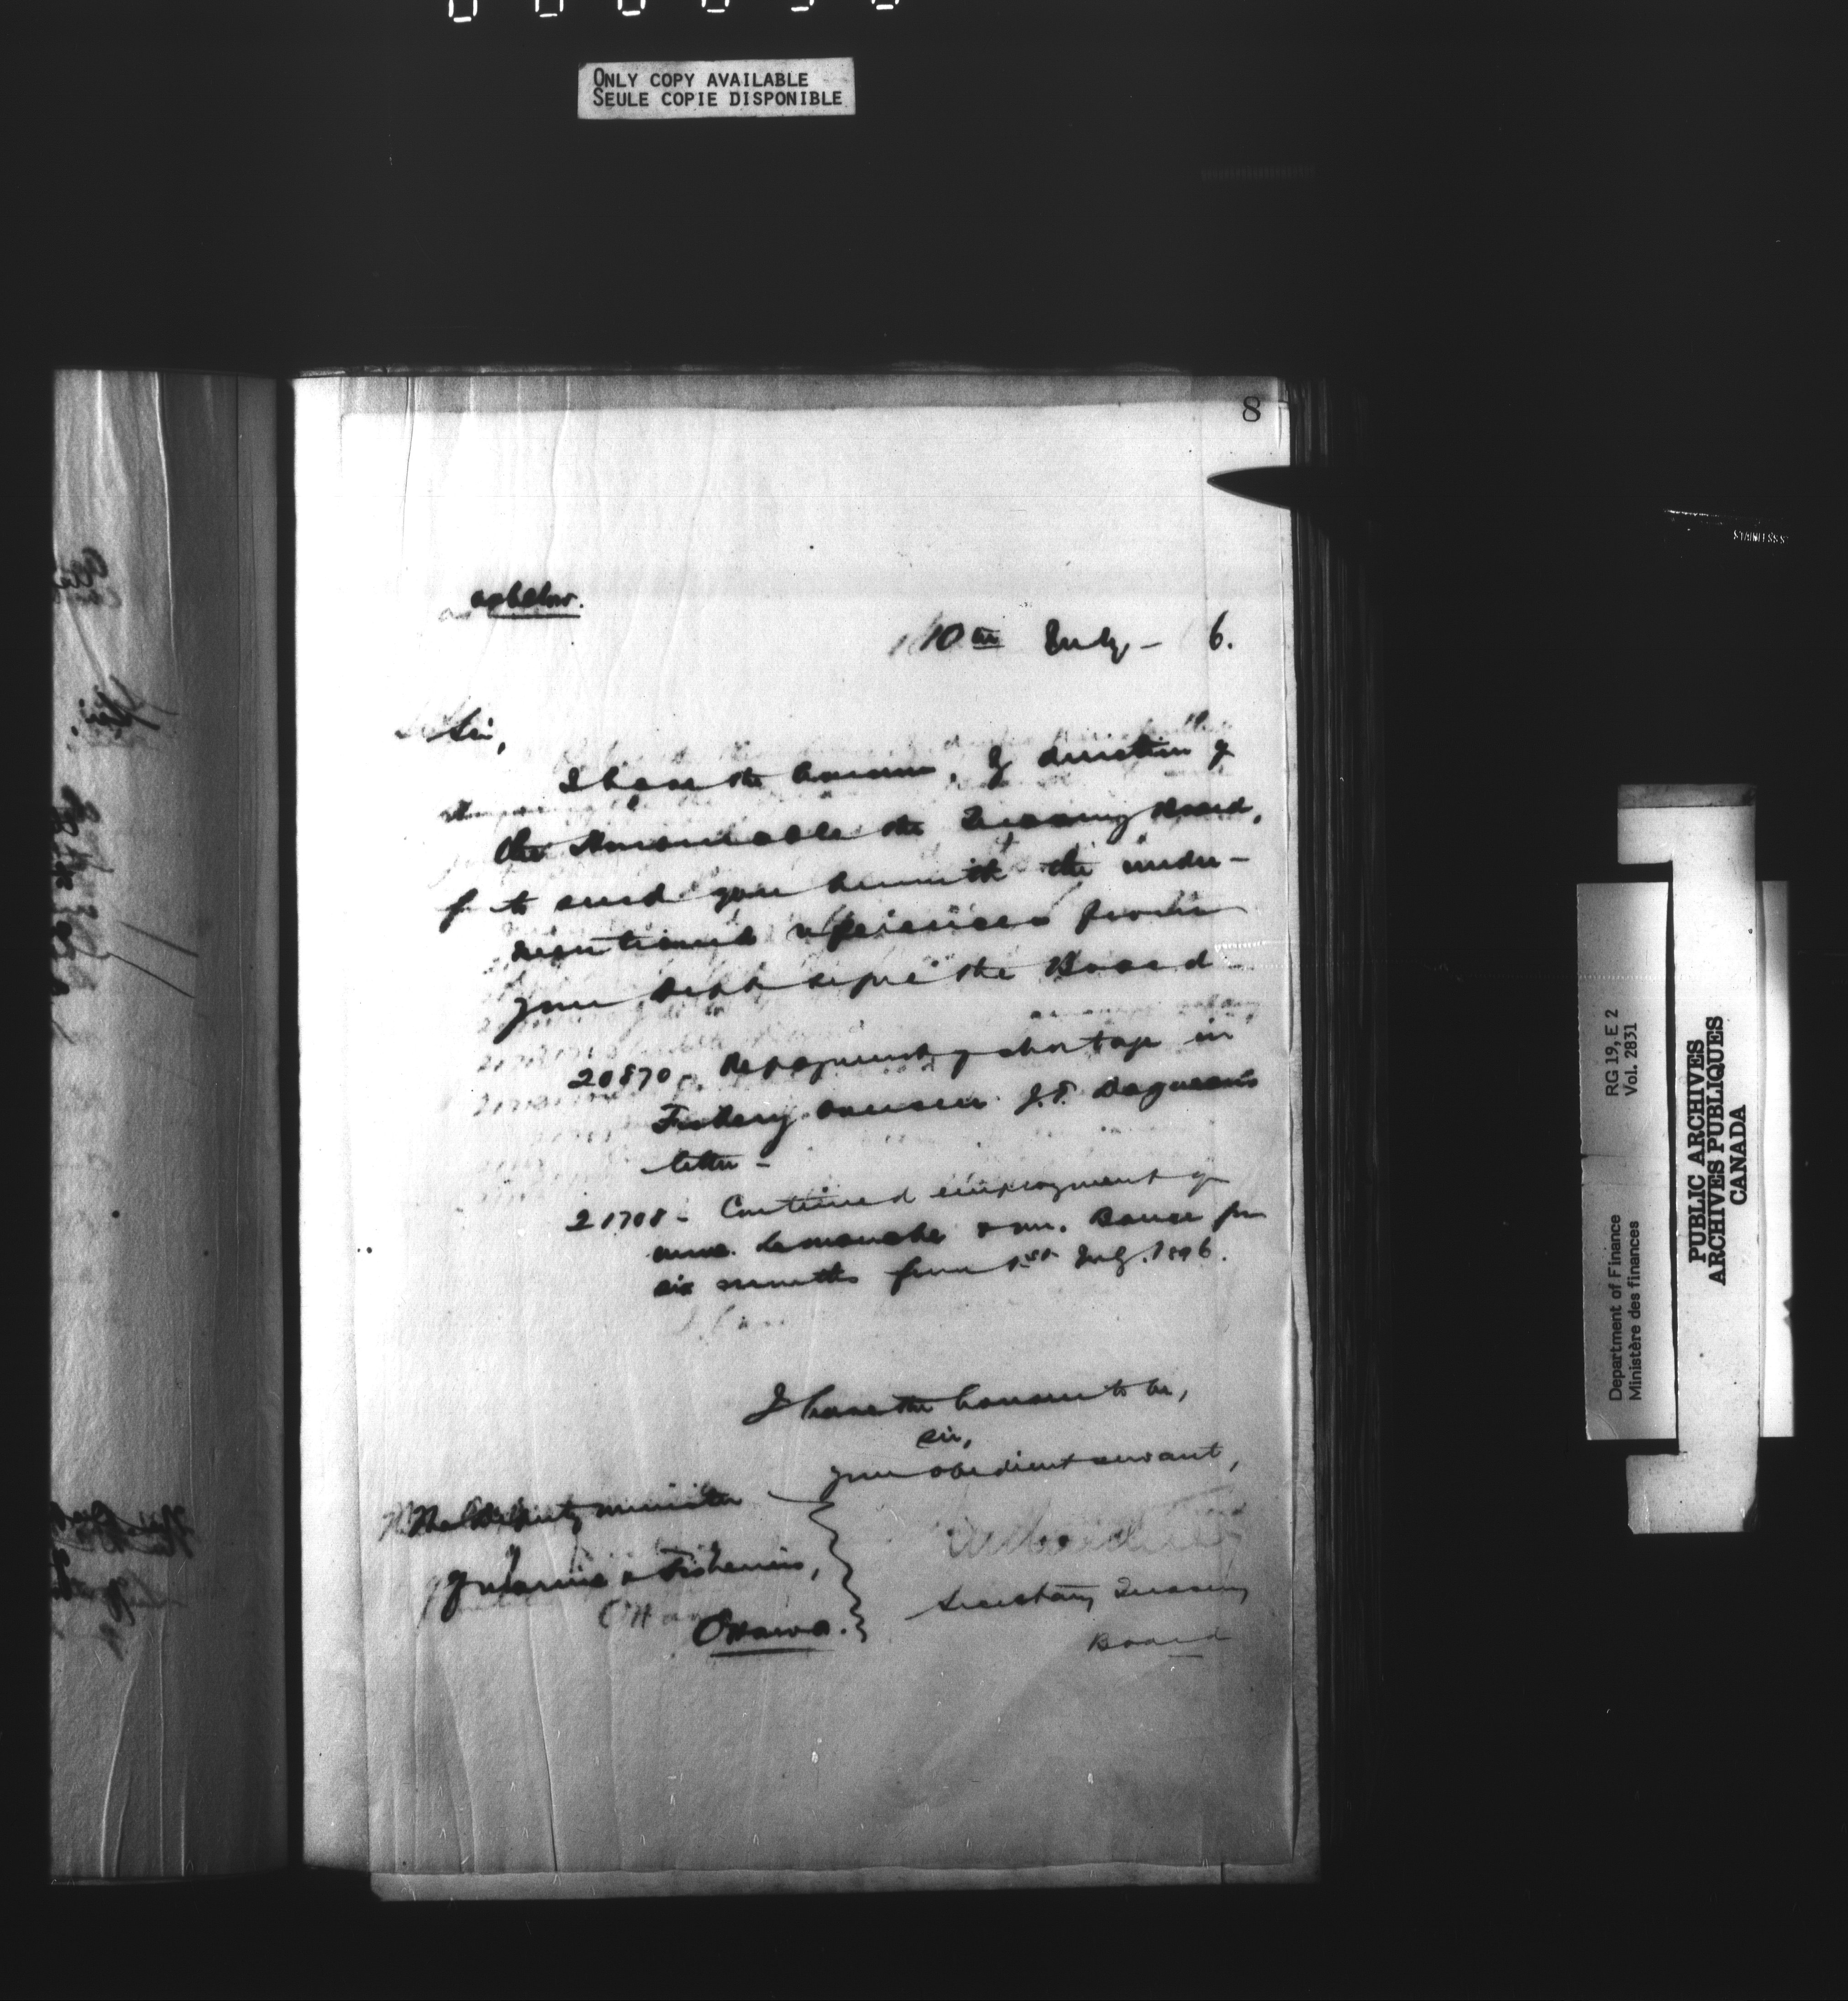 ONLY COPY AVAILABLE
SEULE COPIE DISPONIBLE
8
as below.
10th July - 6.
Sir,
I have the honour, by direction of
the Honourable the Treasury Board,
to send you herewith the under-
mentioned references from
your Dept before the Board
20870 - Repayment of shortage in
Fishery Overseer J.T.
letter -
21708 - Continued employment of
for
six months from 1st July. 1896.
I have the honour to be,
Sir,
Your obedient servant,
The Deputy Minister
of Marine & Fisheries,
Ottawa.
Secretary Treasury
Board
STAINLESS
Department of Finance
Ministère des finances
RG 19, E 2
Vol. 2831
PUBLIC ARCHIVES
ARCHIVES PUBLIQUES
CANADA